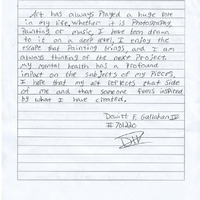 Art has always played a huge role
in my life, whether it is photography
painting or music, I have been drawn
to it on a deep level, I enjoy the
escape that painting brings, and I am
always thinking of the next project.
My mental health has a profound
impact on the subjects of my pieces,
I hope that my art reflects that side
of me and that someone feels inspired
by what I have created.
Dewitt F. Gallahan IV
# 701220